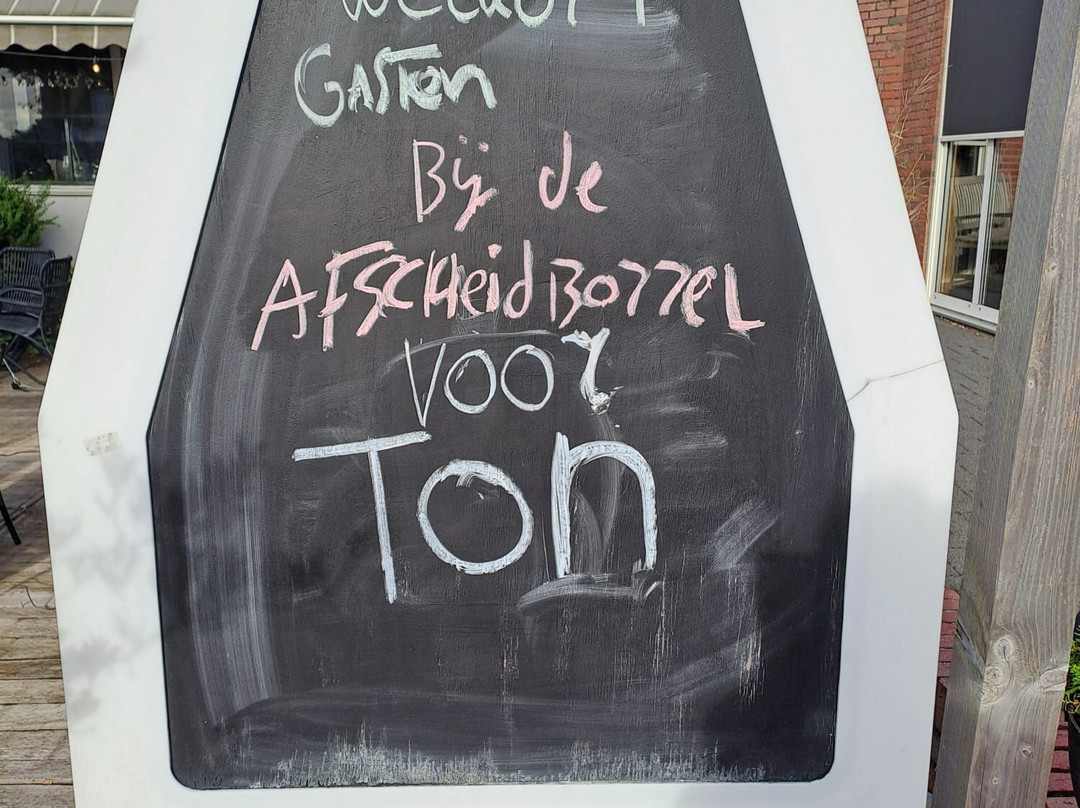 Gaston
Bij de
AFSCHeidBorreL
Voor
Ton